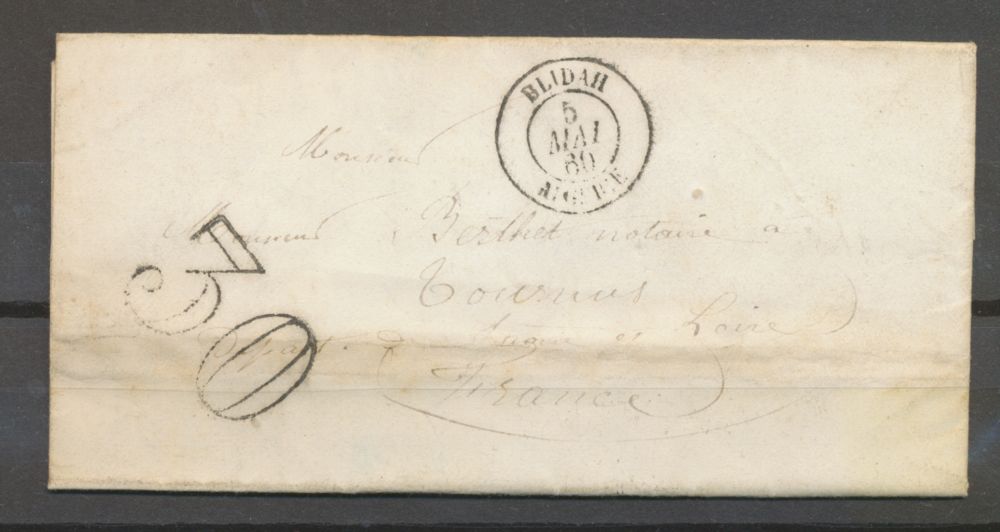 BLIDAH
5
MAI
60
ALGERIE
Monsieur
Monsieur Berthet notaire à
Tournus
Départ. de Saône et Loire
France
30